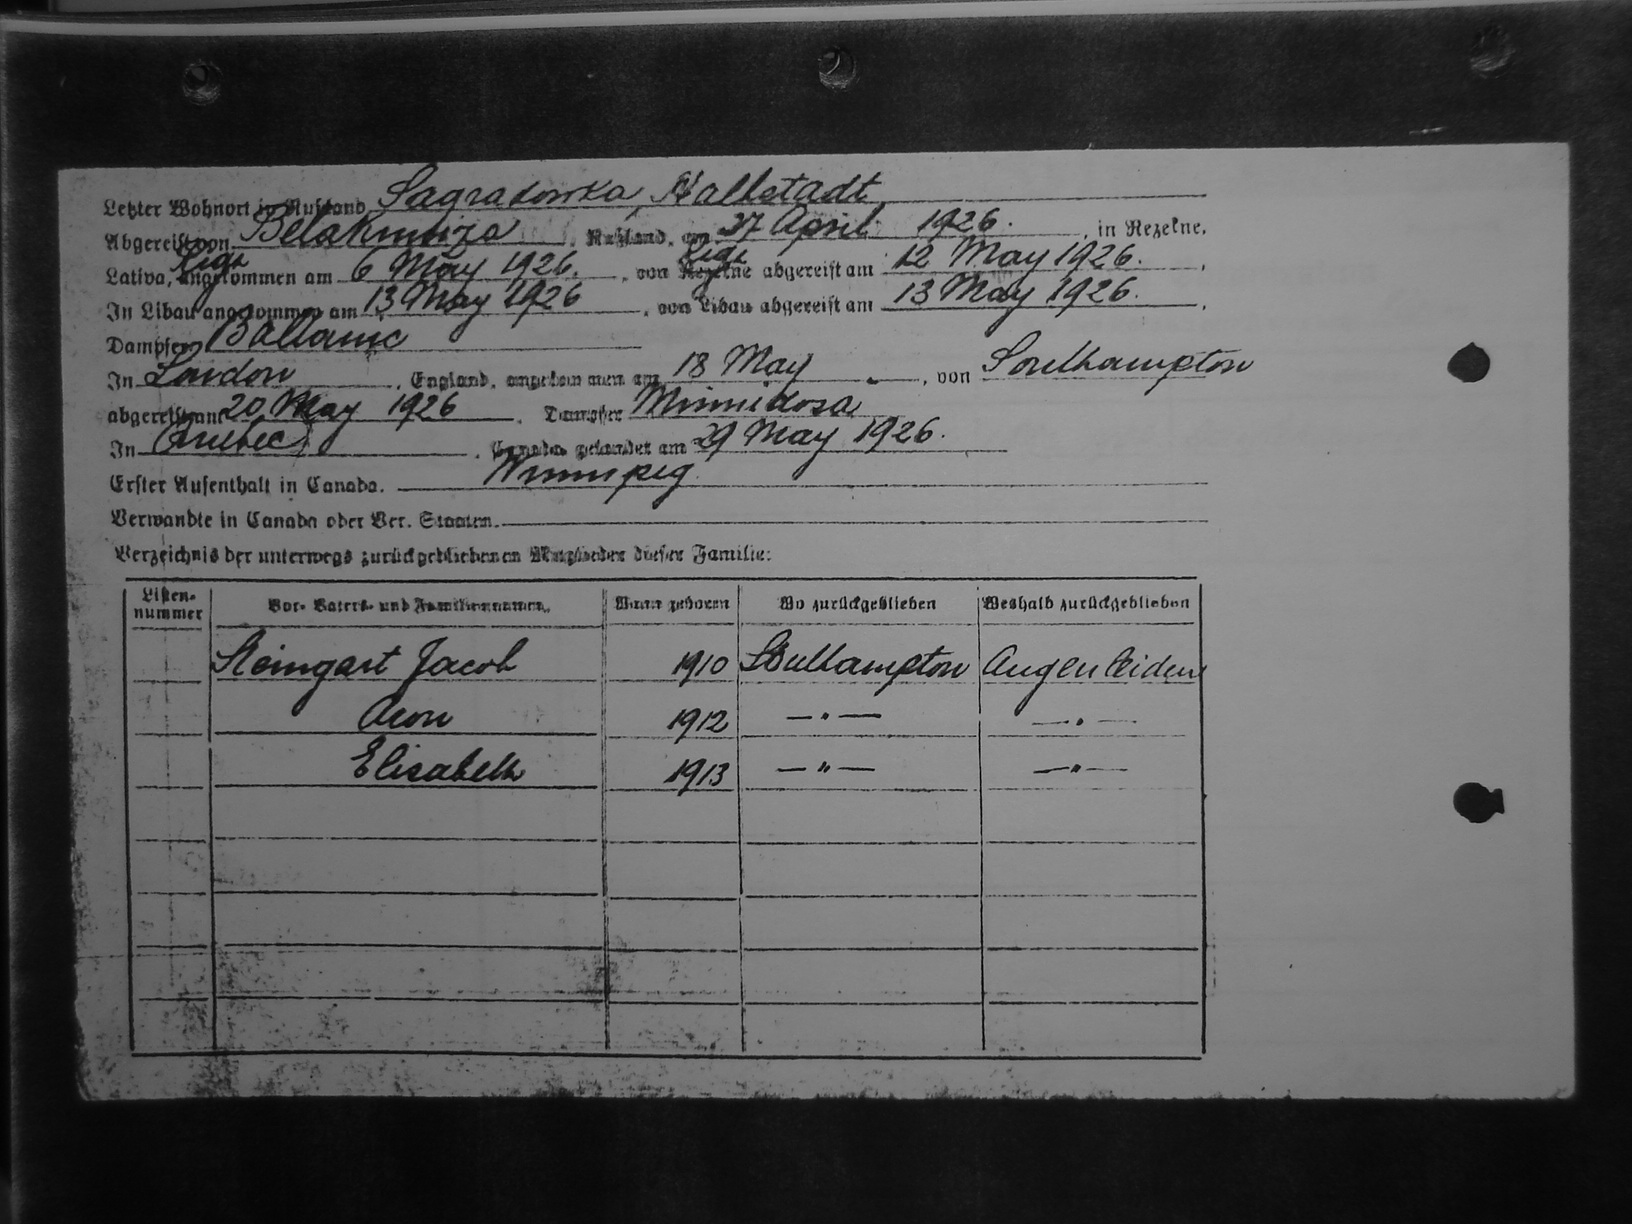 Letzter Wohnort in Rußland Sagradowka, Halbstadt
Abgereist von Belakmitza, Rußland, am 27 April 1926. , in Rezekne,
Riga Riga
Lativa, angekommen am 6 May 1926. , von Rezekne abgereist am 12 May 1926. ,
In Libau angekommen am 13 May 1926 , von Libau abgereist am 13 May 1926. ,
Dampfer Baltanic
In London , England, angekommen am 18 May , von Southampton
abgereist am 20 May 1926 . Dampfer Minnedosa
In Quebec , Canada gelandet am 29 May 1926.
Erster Aufenthalt in Canada. Winnipeg
Verwandte in Canada oder Ver. Staaten.
Verzeichnis der unterwegs zurückgebliebenen Mitglieder dieser Familie:
Listen-nummer Vor- Vaters- und Familiennamen. Wann geboren Wo zurückgeblieben Weshalb zurückgeblieben
Steingart Jacob 1910 Southampton Augenleidens
Aron 1912 — " — — " —
Elisabeth 1913 — " — — " —